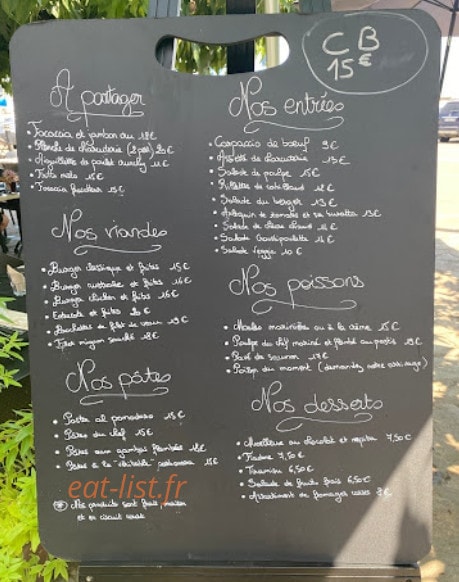 CB
15€
A partager
• Focaccia et jambon cru 18€
• Planche de charcuterie (2 pers) 20€
• Aiguillette de poulet 11€
• Frito misto 15€
• Focaccia 15€
Nos viandes
• Burger classique et frites 15€
• Burger et frites 16€
• Burger chicken et frites 16€
• Entrecôte et frites 20€
• Brochettes de filet de veau 19€
• Filet mignon 18€
Nos pâtes
• Pasta al pomodoro 15€
• Pâtes du chef 15€
• Pâtes aux gambas flambées 18€
• Pâtes à la 15€
Nos produits sont frais, maison
et en circuit court
Nos entrées
• Carpaccio de boeuf 9€
• Assiette de charcuterie 13€
• Salade de poulpe 15€
• Rillettes de cabillaud 12€
• Salade du berger 13€
• de tomates et sa burratta 13€
• Salade de chèvre chaud 14€
• Salade 14€
• Salade veggie 10€
Nos poissons
• Moules marinières ou à la crème 15€
• Poulpe du chef mariné et flambé au pastis 19€
• Pavé de saumon 17€
• Poisson du moment (demandez notre arrivage)
Nos desserts
• Moelleux au chocolat et 7,50€
• Tiramisu 6,50€
• Salade de fruits frais 6,50€
• Assortiment de fromages
eat-list.fr